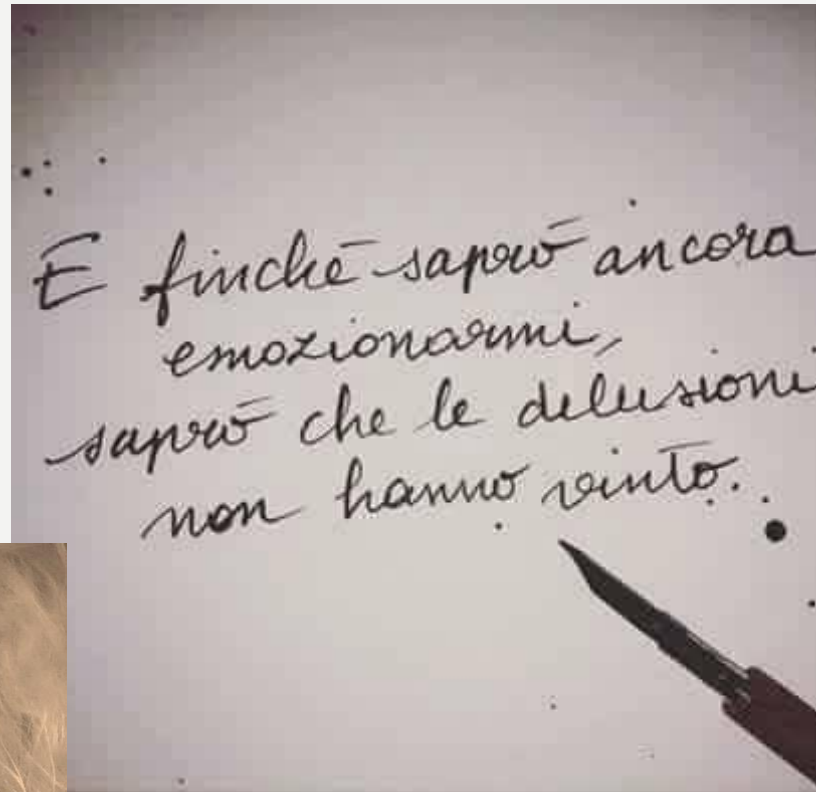 E finchè saprò ancora
emozionarmi,
saprò che le delusioni
non hanno vinto.